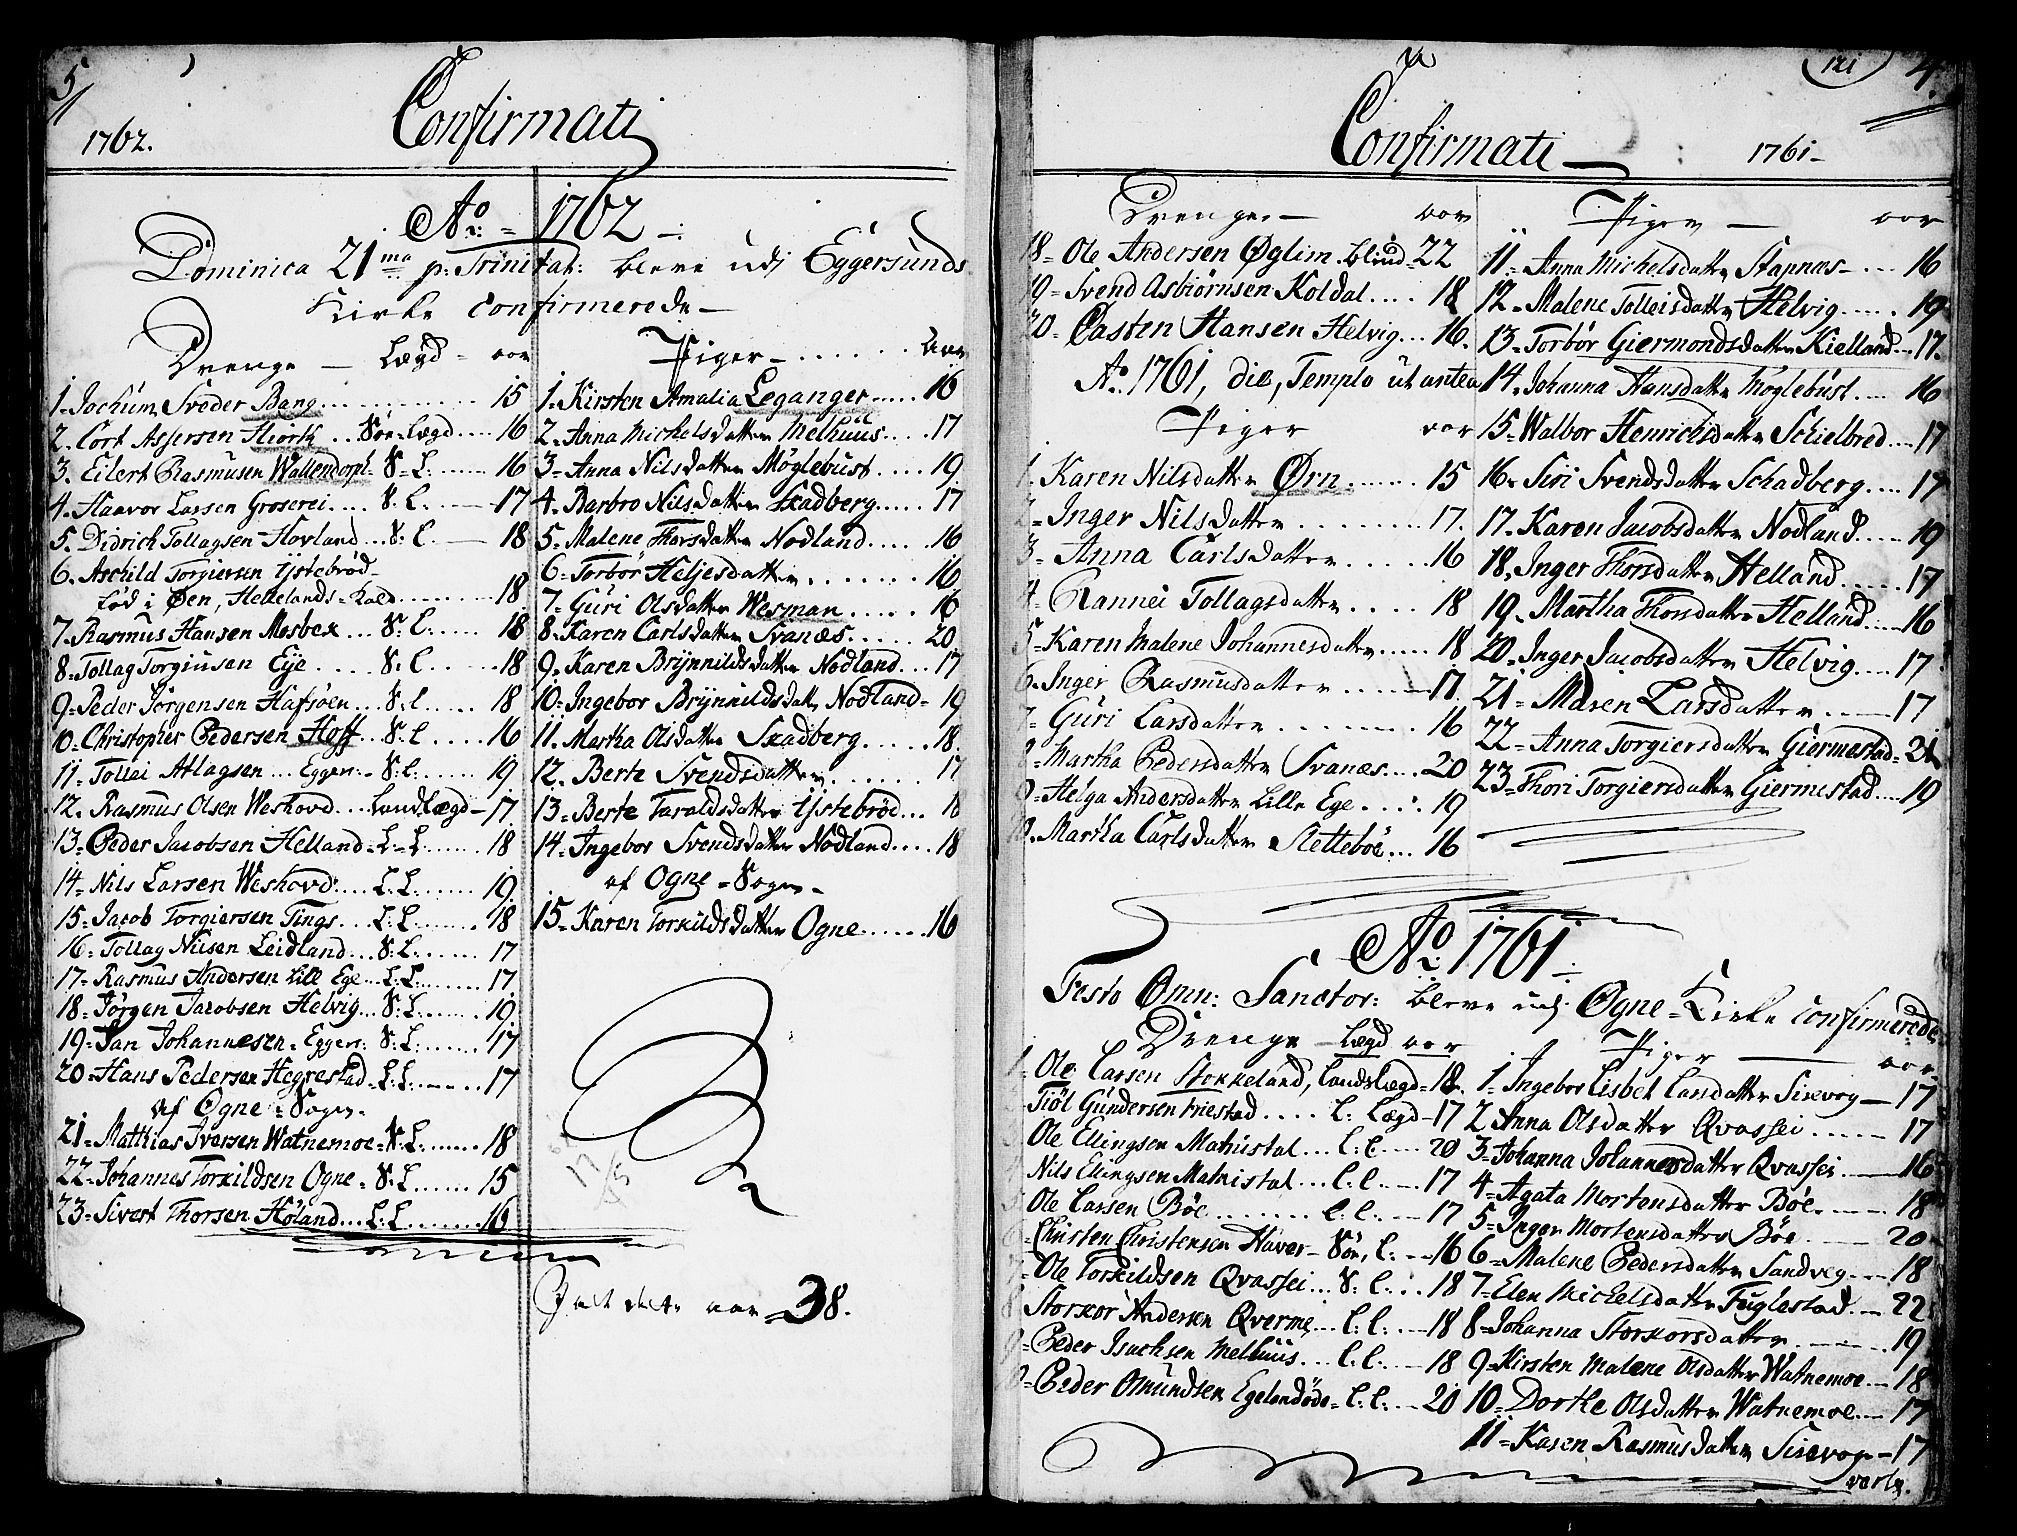 5
1762.
Confirmati
Ao: 1762
Dominica 21ma p: Trinitat: bleve udj Eggersunds
Kirke confirmerede
Drenge Lægd aar
1. Jochum Sveder Bang 15
2. Cort Assersen Hiorth Sør-Lægd 16
3. Eilert Rasmusen Wallendorph S: L: 16
4. Haavor Larsen Groserei S: L. 17
5. Didrich Tollagsen Hovland S: L. 18
6. Aschild Torgiersen Ystebrød
fød i Øen, Hellelands-Kald 18
7. Rasmus Hansen Mosbex S: L: 18
8. Tollag Torgiusen Eije S: L 18
9. Peder Jørgensen Hafsøen S: L 18
10. Christopher Pedersen Hoff S: L 16
11. Tollei Atlagsen Eggers: S: L: 19
12. Rasmus Olsen Weshovd Landlægd 17
13. Peder Jacobsen Helland L: L: 18
14. Nils Larsen Weshovd L: L. 19
15. Jacob Torgiersen Tings L: L. 18
16. Tollag Nilsen Leidland S: L. 17
17. Rasmus Andersen Lille Ege L: L. 17
18. Jørgen Jacobsen Helvig S: L. 19
19. Jan Johannesen Eggers: S: L. 17
20. Hans Pedersen Hegrestad L: L. 17
af Ogne Sogn
21. Matthias Iversen Watnemoe S: L. 18
22. Johannes Torkildsen Ogne S: L. 15
23. Sivert Thorsen Høland L: L. 16
Piger aar
1. Kirsten Amalia Leganger 16
2. Anna Michelsdatter Melhuus 17
3. Anna Nilsdatter Møglebust 19
4. Barbro Nilsdatter Skadberg 17
5. Malene Thorsdatter Nodland 16
6. Torbør Heljesdatter 16
7. Guri Olsdatter Wesman 16
8. Karen Carlsdatter Svanæs 20
9. Karen Brynnildsdatter Nodland 17
10. Ingebor Brynnildsdatt Nodland 19
11. Martha Olsdatter Skadberg 18.
12. Berte Svendsdatter 17
13. Berte Taraldsdatter Ystebrød 18
14. Ingebor Svendsdatter Nodland 18
af Ogne Sogn
15. Karen Torkildsdatter Ogne 16
dette aar 38.
121
4
Confirmati
1761
Drenge aar
18 Ole Andersen Øglim blind 22
19 Svend Asbiørnsen Koldal 18
20 Casten Hansen Helvig 16.
Ao 1761, die, Templo ut antea
Piger aar
1. Karen Nilsdatter Ørn 15
2. Inger Nilsdatter 17.
3. Anna Carlsdatter 16
4. Rannei Tollagsdatter 18
5. Karen Malene Johannesdatter 18
6. Inger Rasmusdatter 17.
7. Guri Larsdatter 16
8. Martha Pedersdatter Svanæs 20
9. Helga Andersdatter Lille Ege 19
10. Martha Carlsdatter Slettebøe 16
Piger aar
11. Anna Michelsdatter Stapnes 16
12. Malene Tolleisdatter Helvig 19
13. Torbør Giermondsdatter Kielland 17.
14. Johanna Hansdatter Møglebust 16
15. Walbor Henrichsdatter Schielbred 17
16. Siri Svendsdatter Schadberg 17
17. Karen Jacobsdatter Nodland 19
18. Inger Thorsdatter Helland 17
19. Martha Thorsdatter Helland 16
20. Inger Jacobsdatter Helvig 17
21. Maren Larsdatter 17
22. Anna Torgiersdatter Giermestad 21
23. Thori Torgiersdatter Giermestad 19
Ao: 1761
Festo Omn: Sanctor: bleve udj Ogne Kirke confirmerede
Drenge Lægd aar
1. Ole Larsen Stokkeland, Landslægd 18.
Tiøl Gundersen Friestad L: Lægd 17
Ole Ellingsen Matnistal L: L 20
Nils Ellingsen Matnistal L: L. 17
Ole Larsen Bøe L: L: 17
Christen Christensen Haver Sør, L: 16
Ole Torkildsen Qvassei S: L: 18
Storkor Andersen Qverme L: L: 18
Peder Isachsen Melhuus L: L: 18
Peder Omundsen Egelandsda L: L: 20
Piger aar
1. Ingebor Lisbet Larsdatter Sirevog 17
2 Anna Olsdatter Qvassei 17
3. Johanna Johannesdatter Qvassei 16
4. Agata Mortensdatter Bøe 18
5. Inger Mortensdatter Bøe 20
6. Malene Pedersdatter Sandveg 18
7. Elen Michelsdatter Fuglestad 22
8. Johanna Storkorsdatter 19
9. Kirsten Malene Olsdatter Watnemoe 18
10. Dorthe Olsdatter Watnemoe 17
11. Karen Rasmusdatter Sirevog 17
verte.